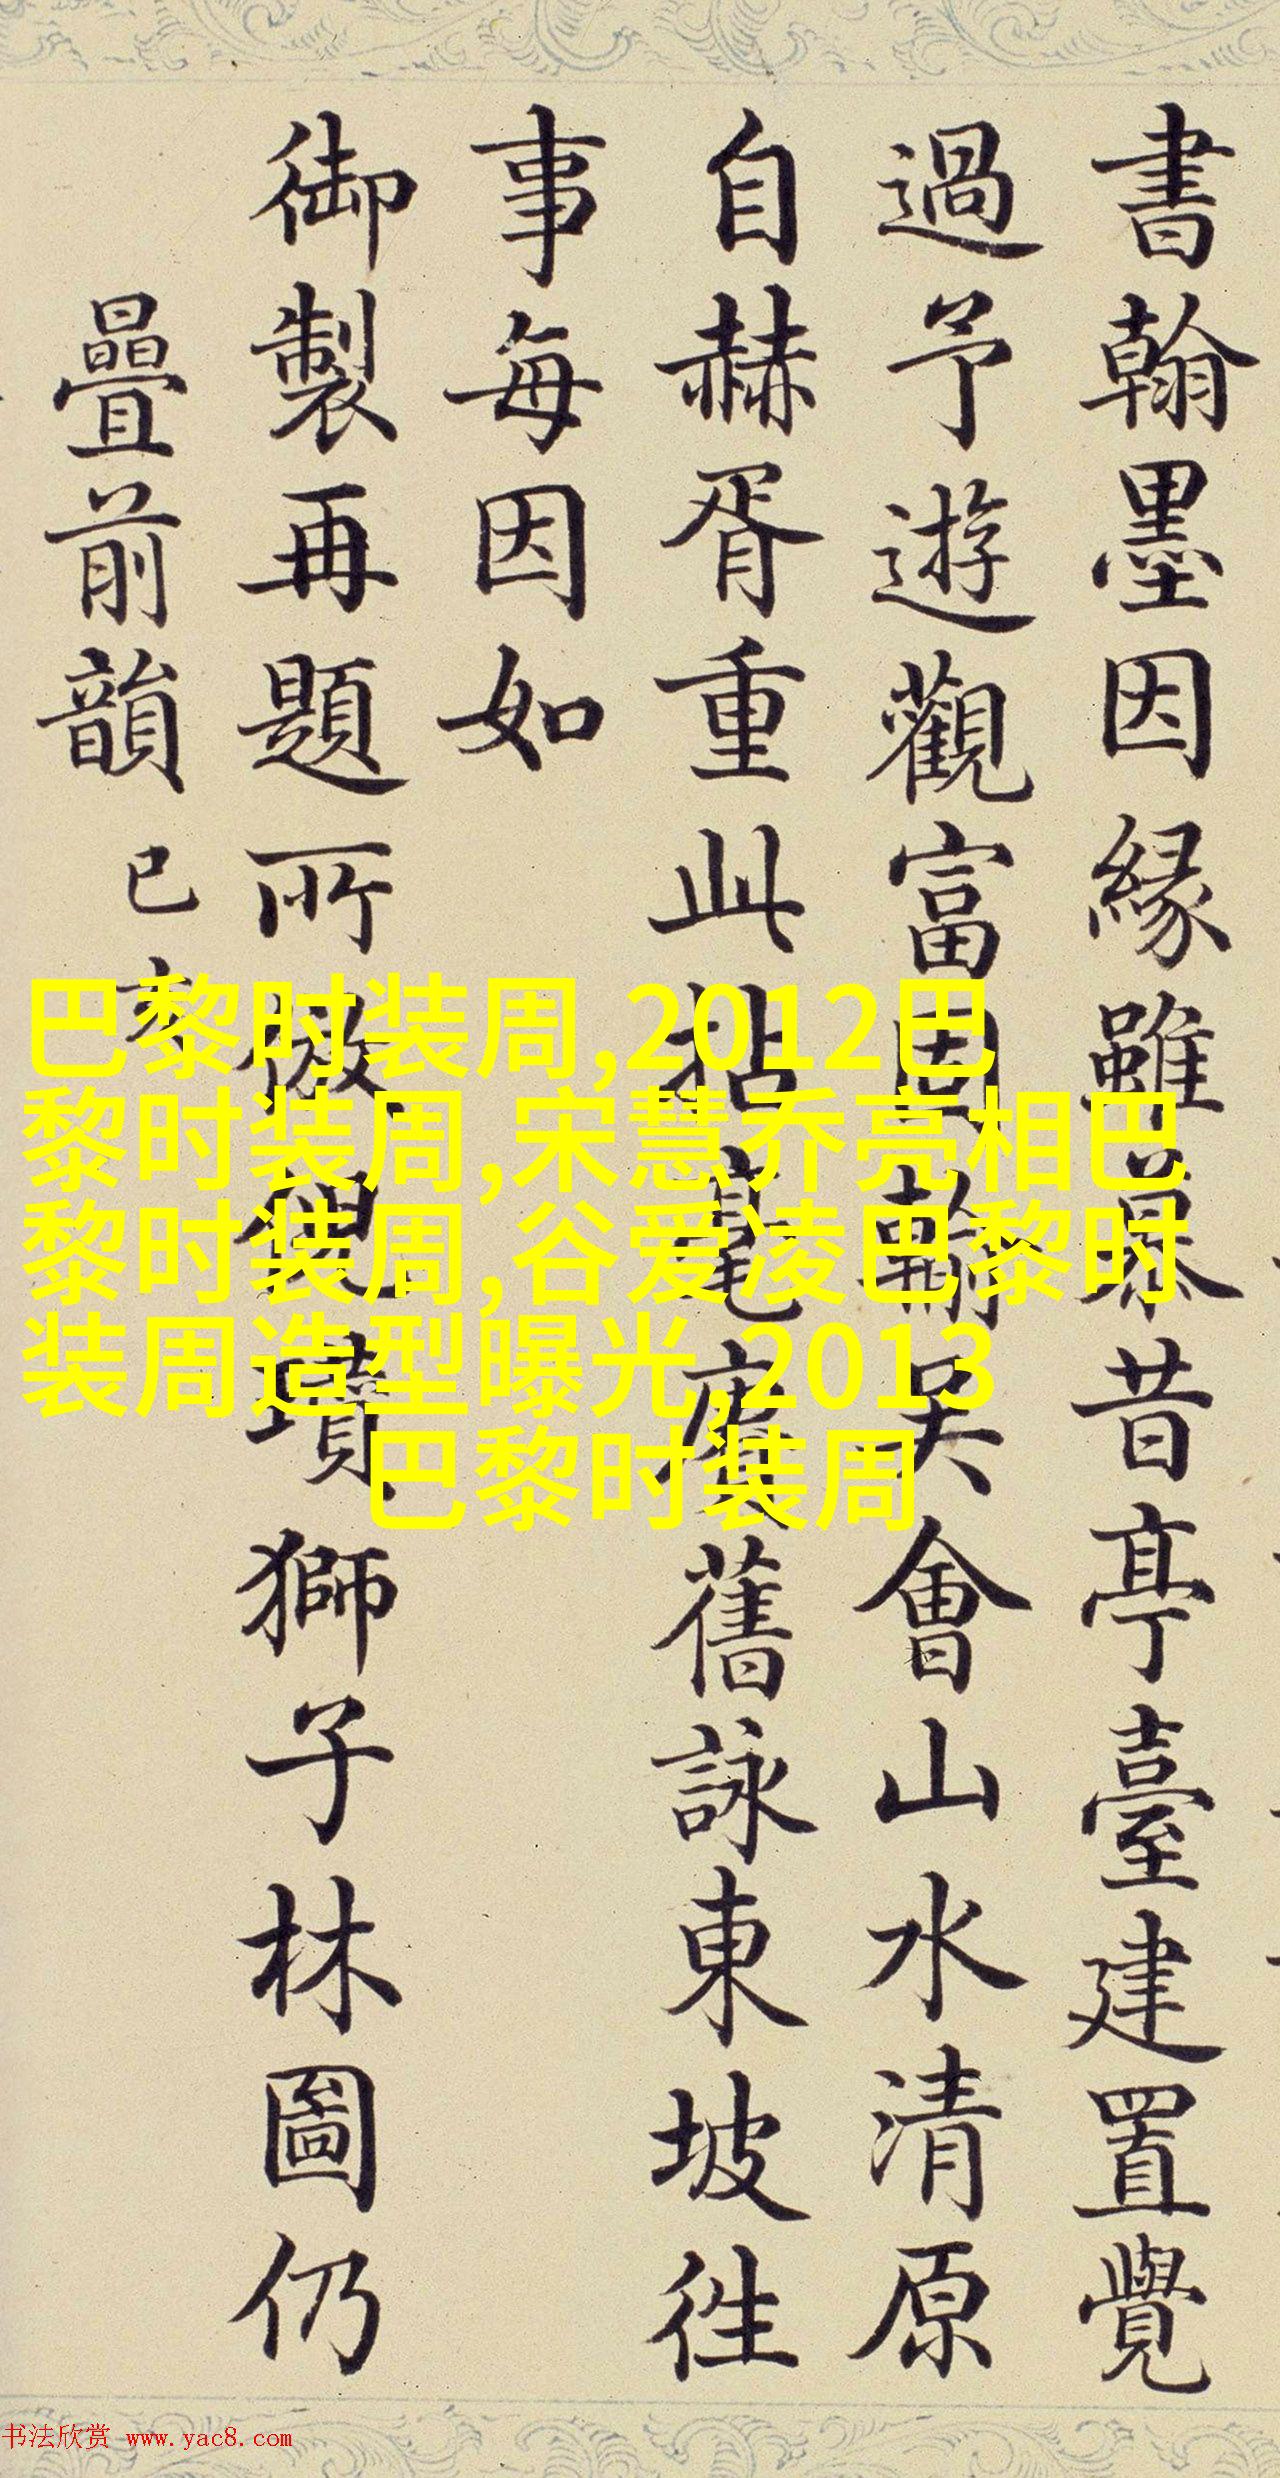 書翰墨因緣雖昔亭臺建置覺
過予遊觀富因翰吳會山水清原
自赫胥重此拈毫賡舊詠東坡徃
事每因如
御製再題所倣倪瓚獅子林圖仍
疊前韻 已
巴黎时装周,2012巴
黎时装周,宋慧乔亮相巴
黎时装周,谷爱凌巴黎时
装周造型曝光,2013
巴黎时装周
书法欣赏 www.yac8.com